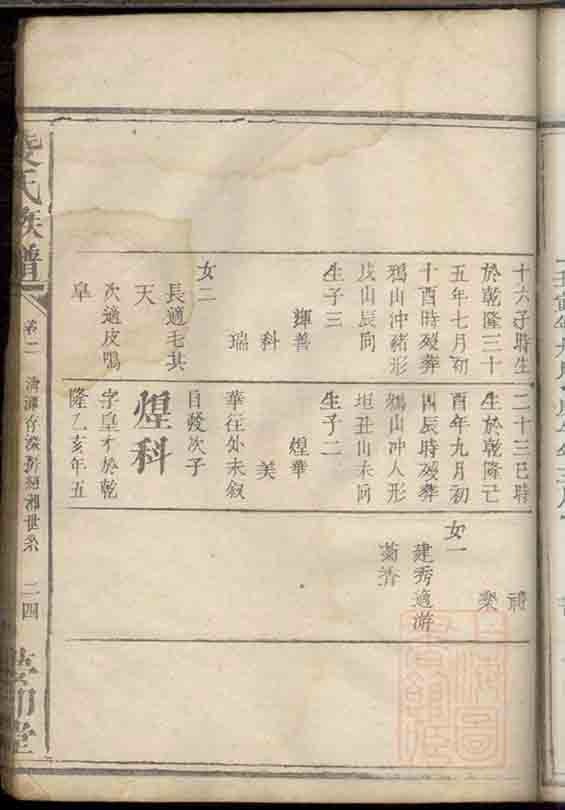 十六子時生
於乾隆三十
五年七月初
十酉時歿葬
鴉山沖豬形
戌山辰向
生子三
輝善
科
瑞
女二
長適毛其
天
次適皮鳴
皐
二十三巳時
生於乾隆己
酉年九月初
四辰時歿葬
鴉山沖人形
坦丑山未向
生子二
煌華
美
華往外未叙
目發次子
煌科
字皇才於乾
隆乙亥年五
禧
樂
女一
建秀適游
菊
氏族譜
卷二
世系
二四
堂